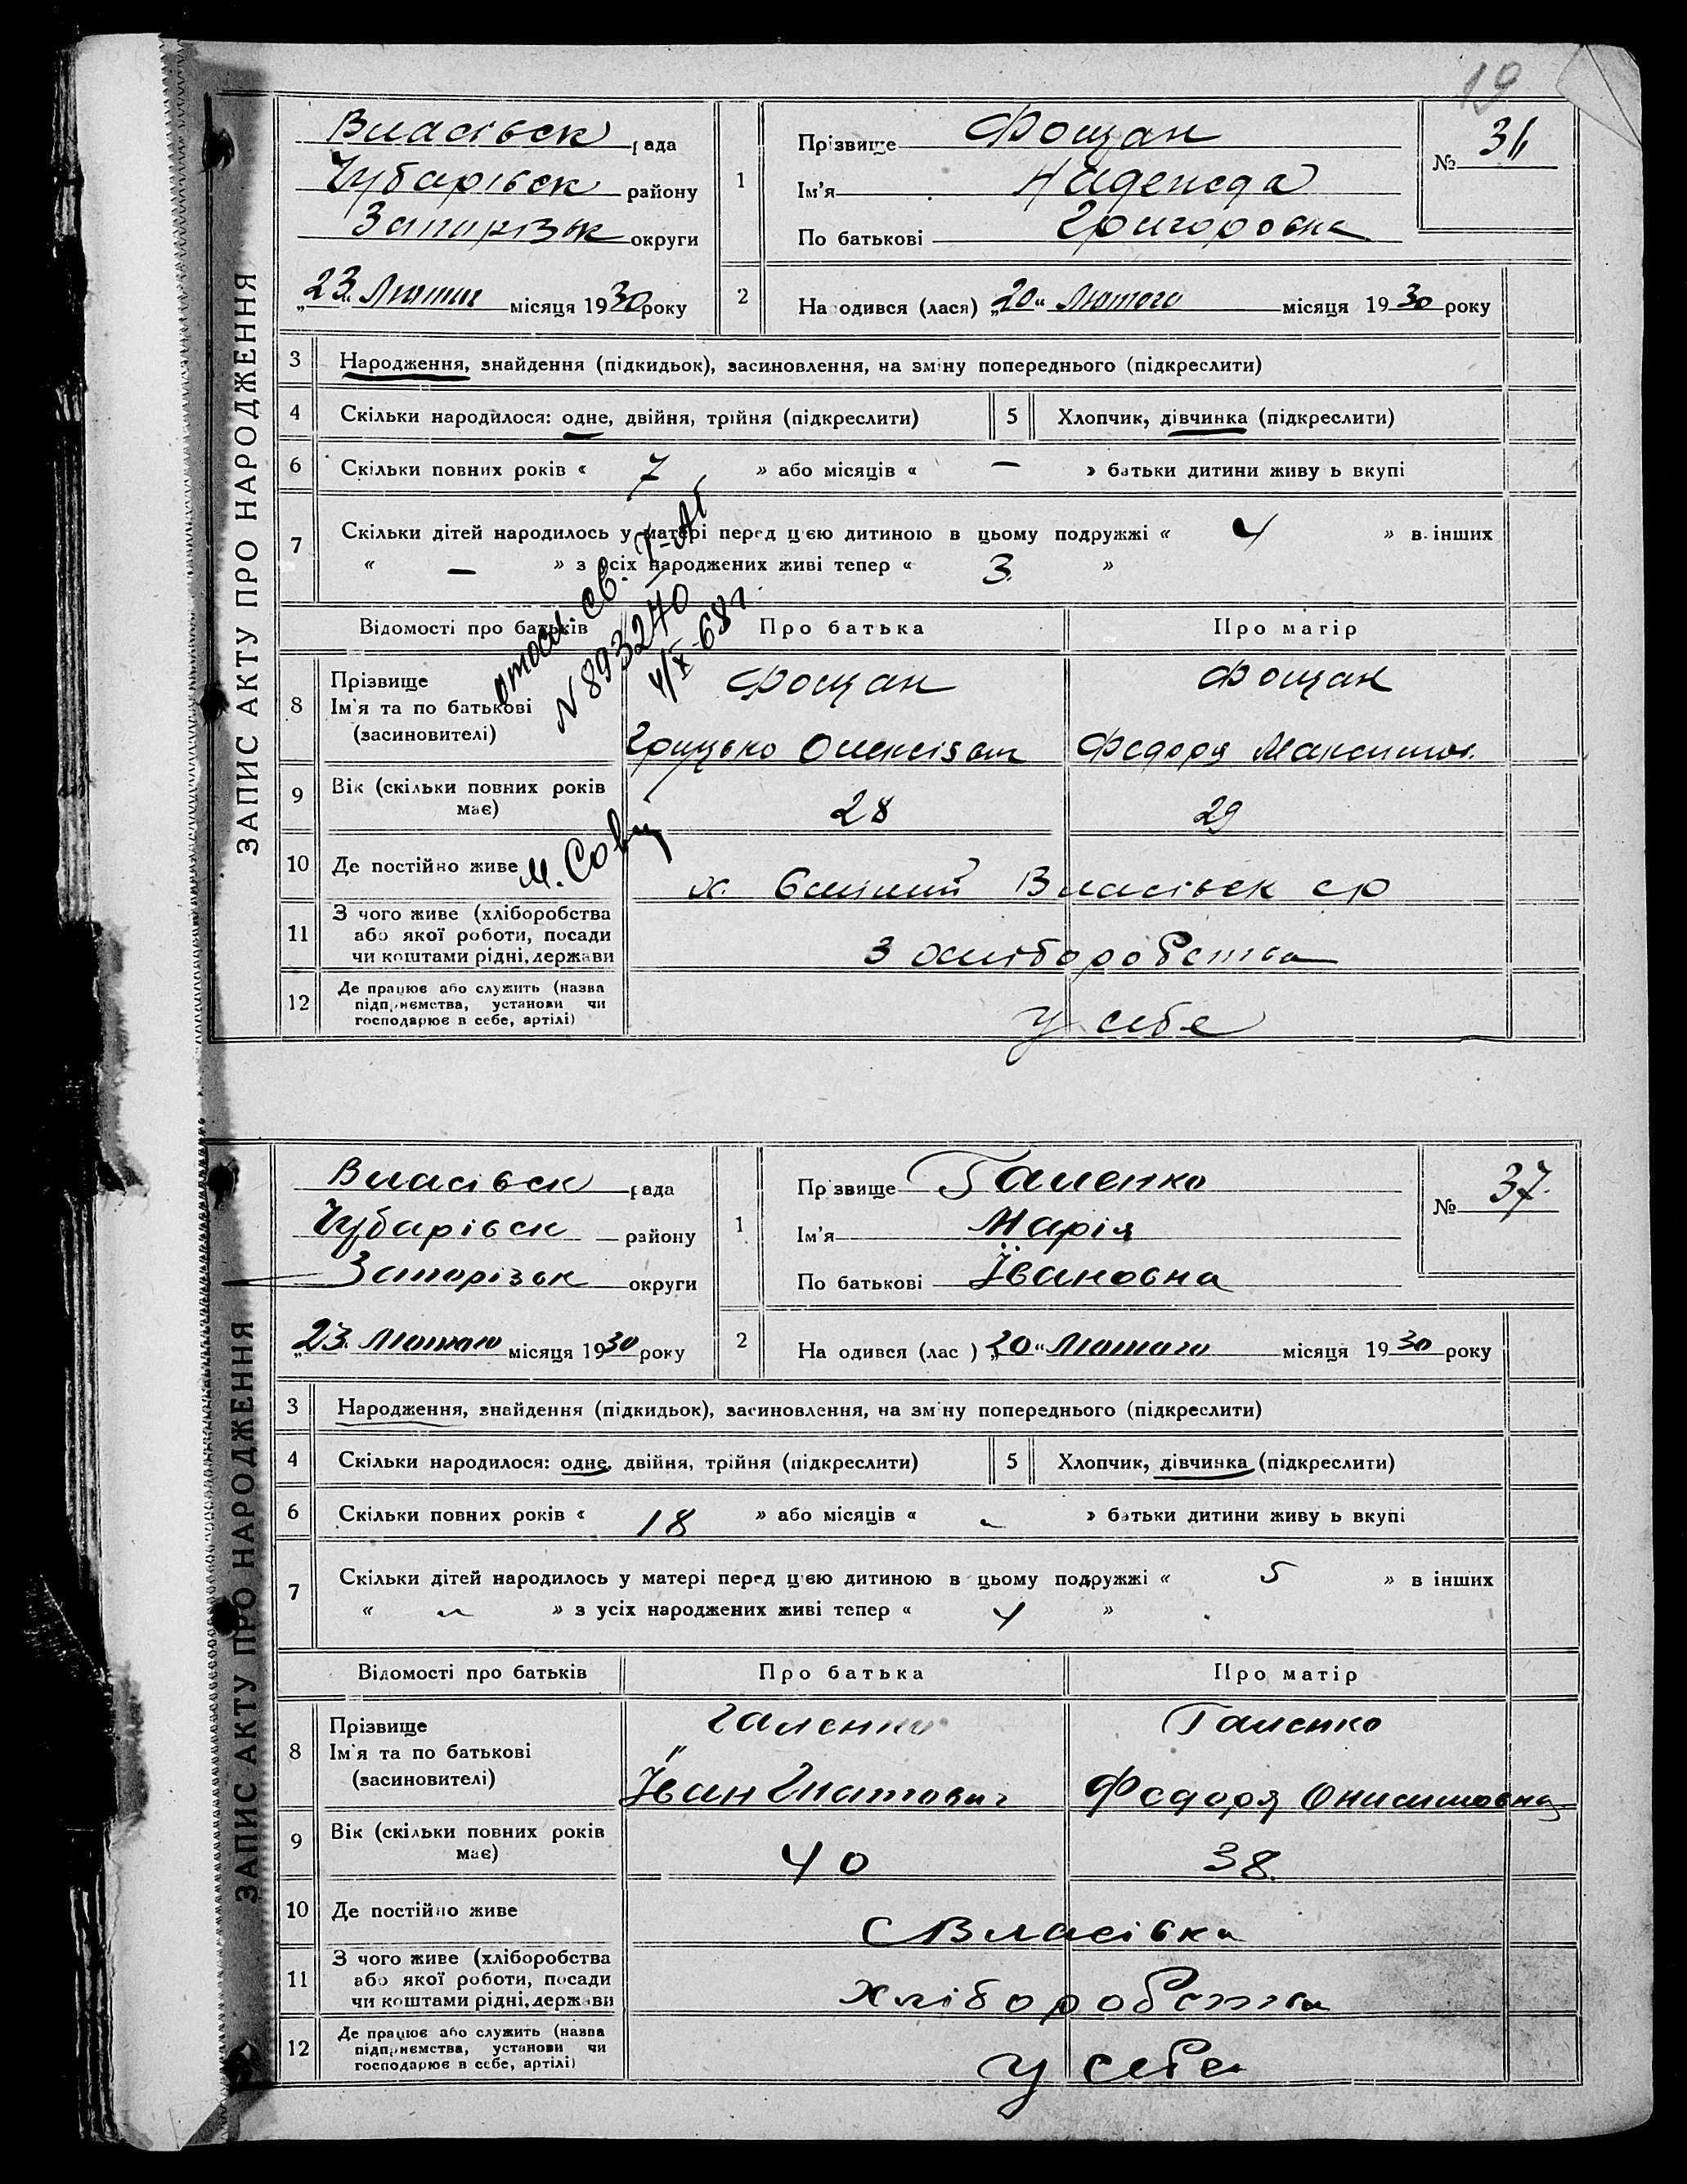 19
ЗАПИС АКТУ ПРО НАРОДЖЕННЯ
Власівськ рада
Чубарівськ району
Запорізьк округи
„23" Лютого місяця 1930 року
1
Прізвище Фощан
Ім'я Надежда
По батькові Григоровна
№ 36
2
На одився (лася) „20" Лютого місяця 1930 року
3 Народження, знайдення (підкидьок), засиновлення, на зміну попереднього (підкреслити)
4 Скільки народилося: одне, двійня, трійня (підкреслити) 5 Хлопчик, дівчинка (підкреслити)
6 Скільки повних років « 7 » або місяців « — » батьки дитини живу ь вкупі
7 Скільки дітей народилось у матері перед цією дитиною в цьому подружжі « 4 » в інших
« — » з усіх народжених живі тепер « 3 »
св. I-АП
N 893240
4/X-68 г
Відомості про батьків Про батька Про матір
8 Прізвище
Ім'я та по батькові
(засиновителі)
Фощан Фощан
Грицько Олексієвич Федора Максимов.
9 Вік (скільки повних років має) 28 29
10 Де постійно живе х. Власівськ ср
11 З чого живе (хліборобства
або якої роботи, посади
чи коштами рідні, держави
З хліборобства
12 Де працює або служить (назва
підприємства, установи чи
господарює в себе, артілі)
у себе
ЗАПИС АКТУ ПРО НАРОДЖЕННЯ
Власівськ рада
Чубарівськ району
Запорізьк округи
„23" Лютого місяця 1930 року
1
Прізвище Галенко
Ім'я Марія
По батькові Івановна
№ 37
2
На одився (лас ) „20" Лютого місяця 1930 року
3 Народження, знайдення (підкидьок), засиновлення, на зміну попереднього (підкреслити)
4 Скільки народилося: одне, двійня, трійня (підкреслити) 5 Хлопчик, дівчинка (підкреслити)
6 Скільки повних років « 18 » або місяців « - » батьки дитини живу ь вкупі
7 Скільки дітей народилось у матері перед цією дитиною в цьому подружжі « 5 » в інших
« - » з усіх народжених живі тепер « 4 »
Відомості про батьків Про батька Про матір
8 Прізвище
Ім'я та по батькові
(засиновителі)
Галенко Галенко
Іван Гнатович Федора Онисимовна
9 Вік (скільки повних років має) 40 38
10 Де постійно живе с Власівка
11 З чого живе (хліборобства
або якої роботи, посади
чи коштами рідні, держави
хліборобства
12 Де працює або служить (назва
підприємства, установи чи
господарює в себе, артілі)
у себе